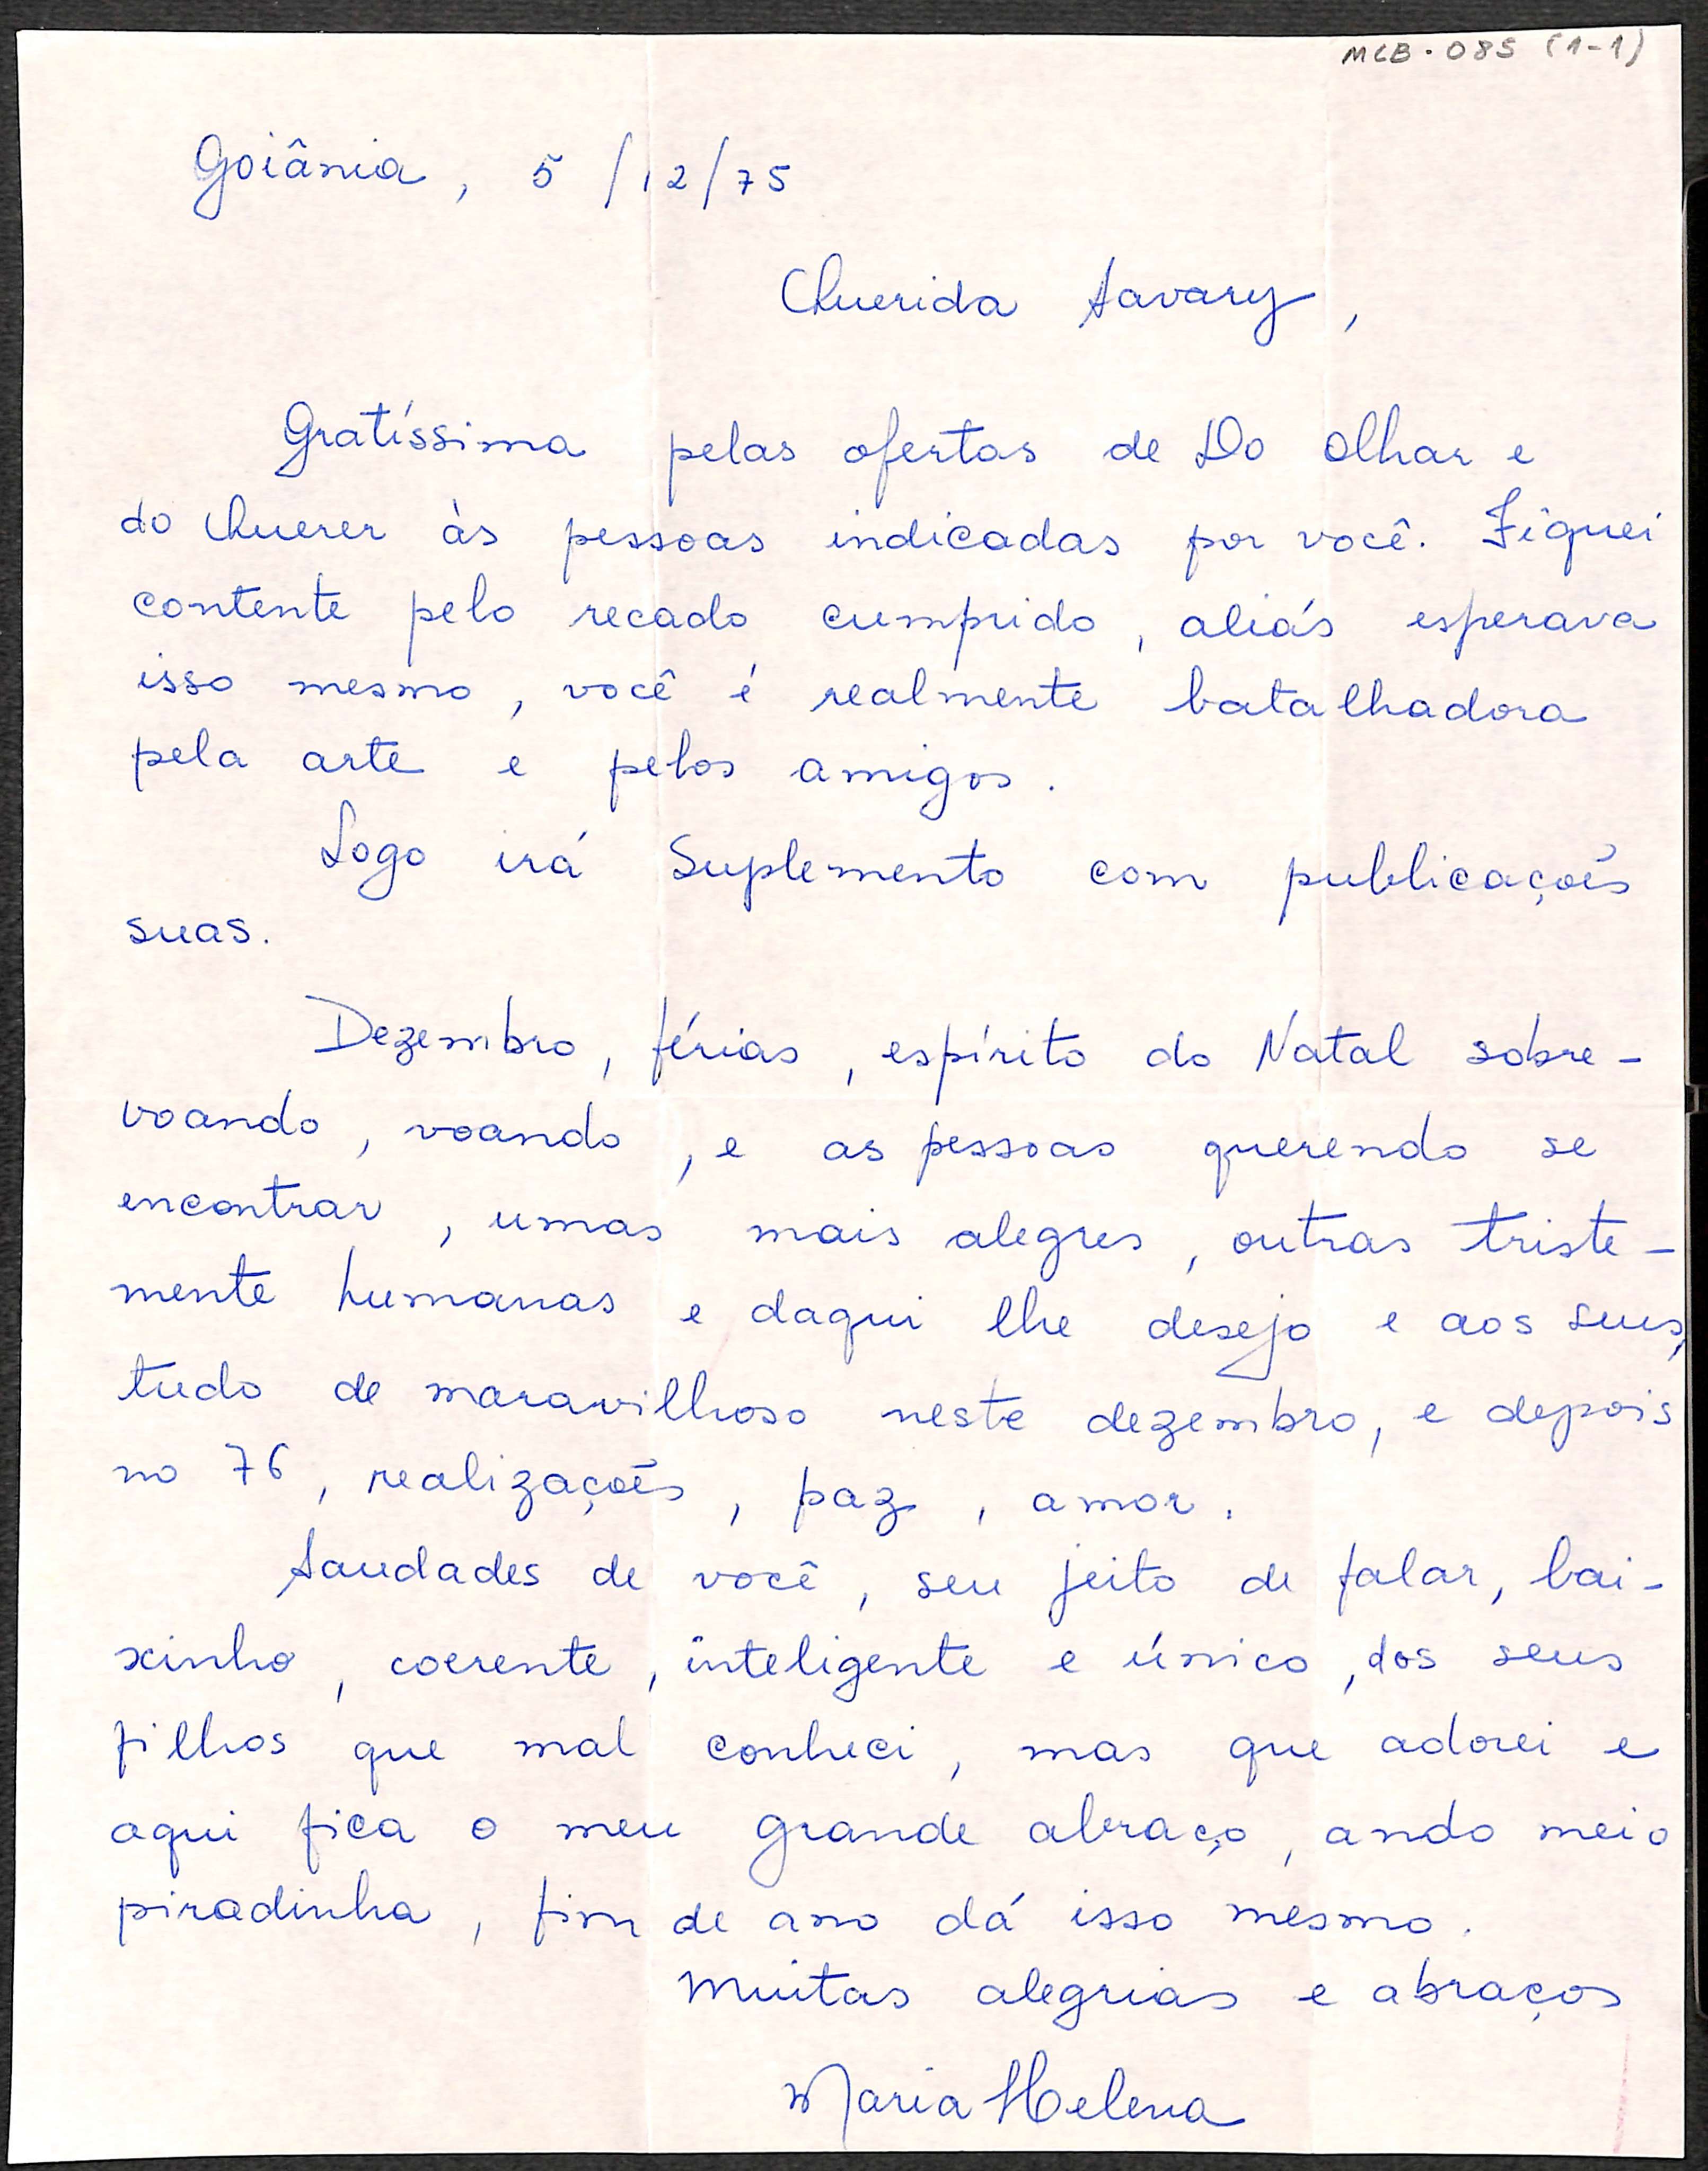 MCB.085 (1-1)
Goiânia, 5/12/75
Querida Savary,
Gratíssima pelas ofertas de Do Olhar e
do Querer às pessoas indicadas por você. Fiquei
contente pelo recado cumprido, aliás esperava
isso mesmo, você é realmente batalhadora
pela arte e pelos amigos.
Logo irá Suplemento com publicações
suas.
Dezembro, férias, espírito do Natal sobre-
voando, voando, e as pessoas querendo se
encontrar, umas mais alegres, outras triste-
mente humanas e daqui lhe desejo e aos seus,
tudo de maravilhoso neste dezembro, e depois
no 76, realizações, paz, amor.
Saudades de você, seu jeito de falar, bai-
xinho, coerente, inteligente e único, dos seus
filhos que mal conheci, mas que adorei e
aqui fica o meu grande abraço, ando meio
piradinha, fim de ano dá isso mesmo.
Muitas alegrias e abraços
Maria Helena